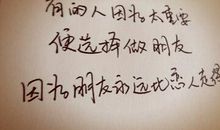 有的人因为太重要
便选择做朋友
因为朋友永远比恋人走得